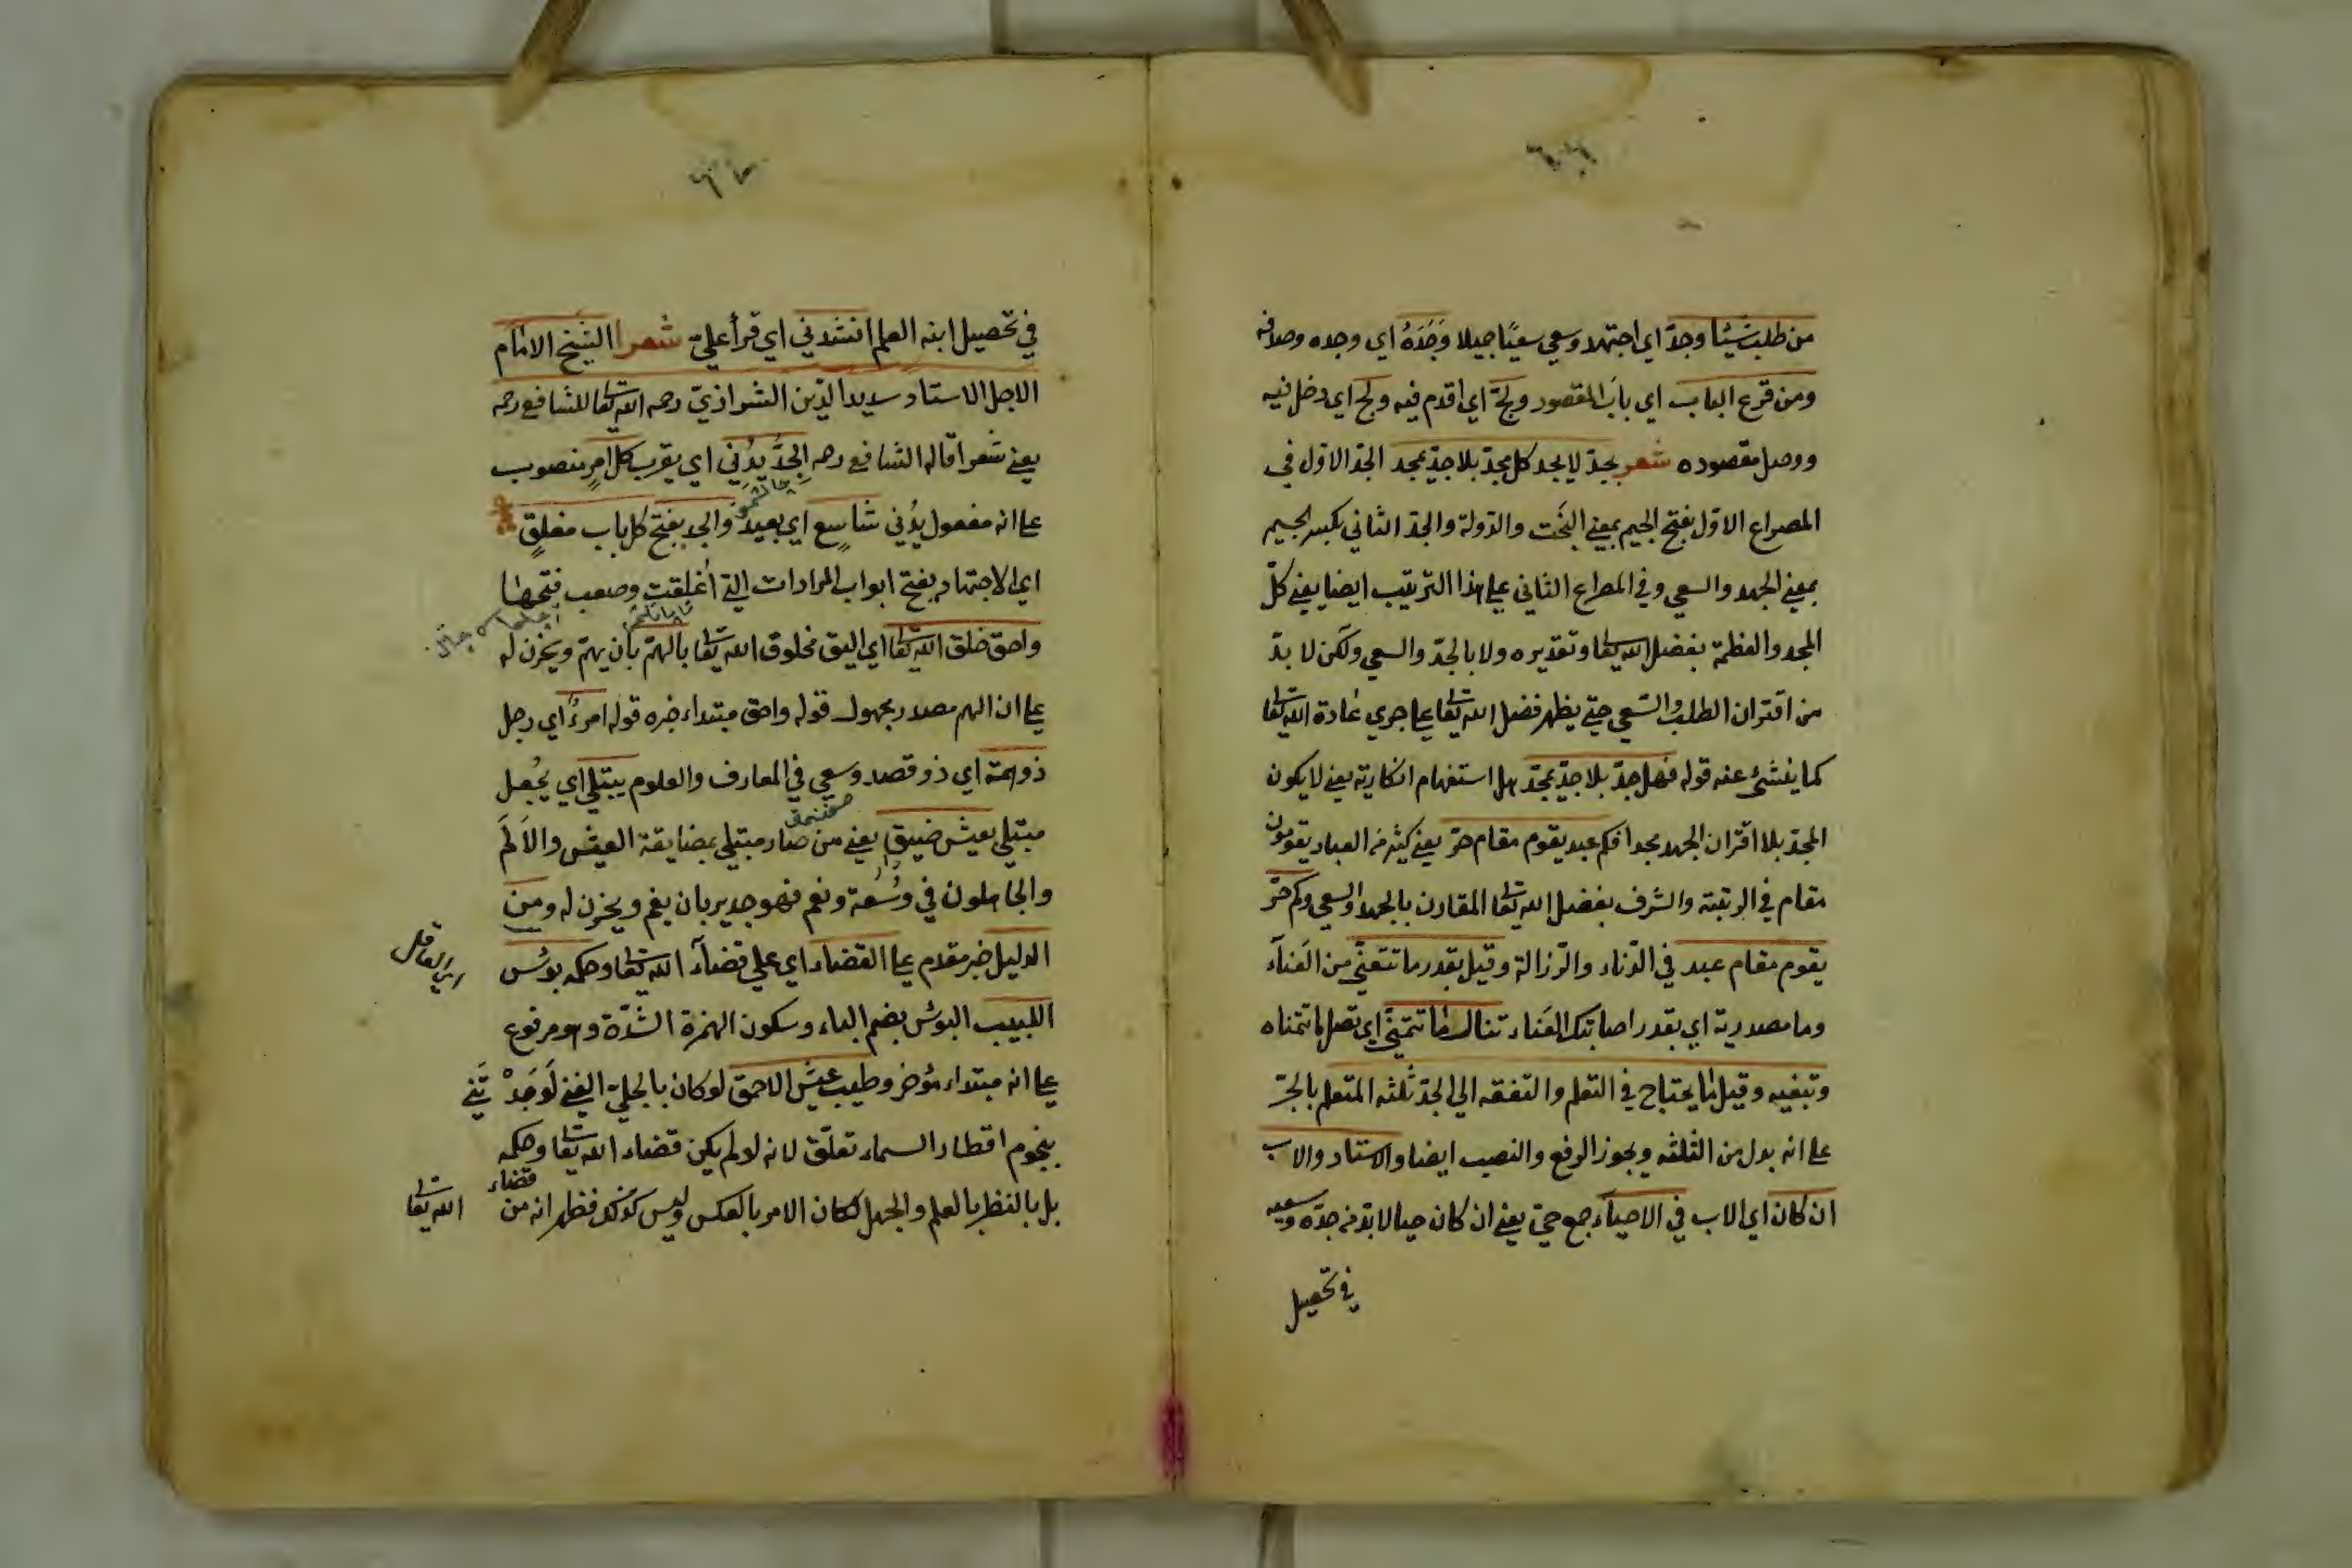 من طلب شيئا وجدّ اي اجتهد وسعي سعيًا جميلا وَجَدَهُ اي وجده وصادفه
ومن قرع الباب اي بابَ المقصود ولجّ اي اقدم فيه ولج اي دخل فيه
ووصل مقصوده شعر بجدّ لا بجد كل مجدّ بلا جدّ بمجد الجدّ الاوّل في
المصراع الاوّل بفتح الجيم بمعني البَخت والدّولة والجدّ الثاني بكسر الجيم
بمعني الجهد والسعي وفي المصراع الثاني علي هذا الترتيب ايضا يعني كلّ
المجد والعظمة بفضل الله تعا وتقديره ولا بالجدّ والسعي ولكن لا بدّ
من اقتران الطلب والسّعي حتي يظهر فضل الله تعا علي جري عادة الله تعا
كما ينشئ عنه قوله فهل جدّ بلا جدّ بمجدّ هل استفهام انكاريّة يعني لا يكون
المجدّ بلا اقتران الجهد مجدا فكم عبد يقوم مقام حرّ يعني كثير من العباد يقومون
مقام في الرتبة والشرف بفضل الله تعا المقارن بالجهد والسعي وكم حرّ
يقوم مقام عبد في الدّناء والرّزالة وقيل بقدر ما تتعنّي من العَناء
وما مصدرية اي بقدر اصابتك العَناء تنال ما تتمنّي اي تصل ما تتمناه
وتبغيه وقيل ما يحتاج في التعلم والتفقه الي الجدّ ثلثه المتعلم بالجرّ
علي انه بدل من الثلثه ويجوز الرفع والنصب ايضا والاستاد والاب
ان كان اي الاب في الاحيآء جمع حيّ يعني ان كان حيا لا بدّ من جدّه وسعيه
في تحصيل
في تحصيل ابنه العلم انشدني اي قرأ عليّ شعرا الشيخ الامام
الاجل الاستاد سديد الدّين الشيرازيّ رحمه الله تعا للشافع رحمه
يعني شعرا قاله الشافع رحمه الجَدُّ يُدْني اي يقرب كل امرٍ منصوب
علي انه مفعول يُدْني شاسِع اي بعيد والجد يفتح كل باب مغلقٍ
اي الاجتهاد يفتح ابواب المرادات التي اُغلقت وصعب فتحها
واحق خلق الله تعا اي اليق مخلوق الله تعا بالهمّ بان يهمّ ويحزن له
علي ان الهم مصدر مجهول قوله واحق مبتداء خبره قوله امرءٌ اي رجل
ذو همّة اي ذو قصد وسعي في المعارف والعلوم يبتلي اي يُجعل
مبتلي بعيش ضيق يعني من صار مبتلي بمضايقة العيش والاَلَم
والجاهلون في وُسْعة ونعم فهو جدير بان يغم ويحزن له ومن
الدليل خبر مقدم علي القضاء اي علي قضآء الله تعا وحكمه بوْس
اي العاقل
اللبيب البوْس بضم الباء وسكون الهمزة الشدّة وهو مرفوع
علي انه مبتداء مؤخر وطيب عيش الاحمق لو كان بالحيل الغني لَوَجَدْتَني
بنجوم اقطار السماء تعلّق لانه لو لم يكن قضاء الله تعا وحكمه
بل بالنظر بالعلم والجهل لكان الامر بالعكس وليس كذلك فظهر انه من قضاء الله تعا